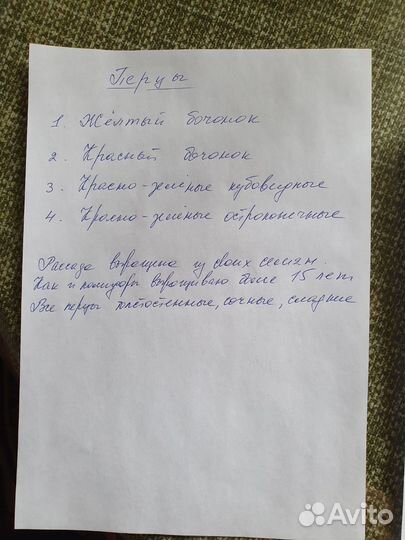 Перцы
1. Жёлтый бочонок
2. Красный бочонок
3. Красно-зелёные кубовидные
4. Красно-зелёные остроконечные
Рассада выращена из своих семян.
Как и помидоры выращиваю более 15 лет
Все перцы толстостенные, сочные, сладкие
Avito